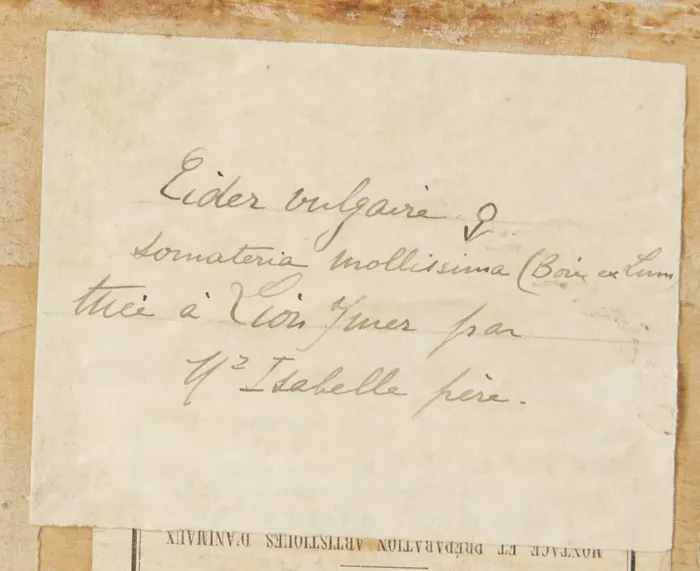 Eider vulgaire ♀
Somateria mollissima (Boie ex Linn
tuée à Lion s/mer par
Mr Isabelle père.
MONTAGE ET PRÉPARATION ARTISTIQUES D'ANIMAUX